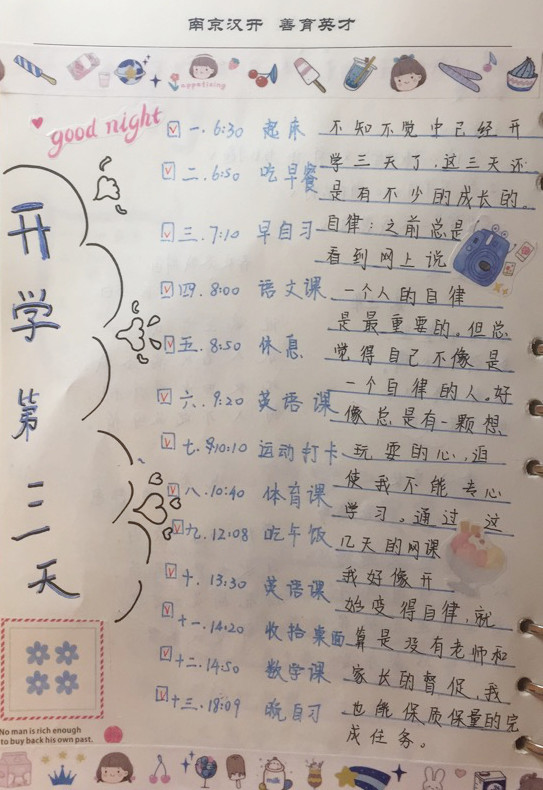 南京汉开 善育英才
appetizing
good night
开学第三天
一. 6:30 起床
二. 6:50 吃早餐
三. 7:10 早自习
四. 8:00 语文课
五. 8:50 休息
六. 9:20 英语课
七. 10:10 运动打卡
八. 10:40 体育课
九. 12:08 吃午饭
十. 13:30 英语课
十一. 14:20 收拾桌面
十二. 14:50 数学课
十三. 18:09 晚自习
不知不觉中已经开
学三天了,这三天还
是有不少的成长的。
自律:之前总是
看到网上说
一个人的自律
是最重要的。但总
觉得自己不像是
一个自律的人。好
像总是有一颗想
玩耍的心,迫
使我不能专心
学习。通过这
几天的网课
我好像开
始变得自律,就
算是没有老师和
家长的督促,我
也能保质保量的完
成任务。
No man is rich enough
to buy back his own past.